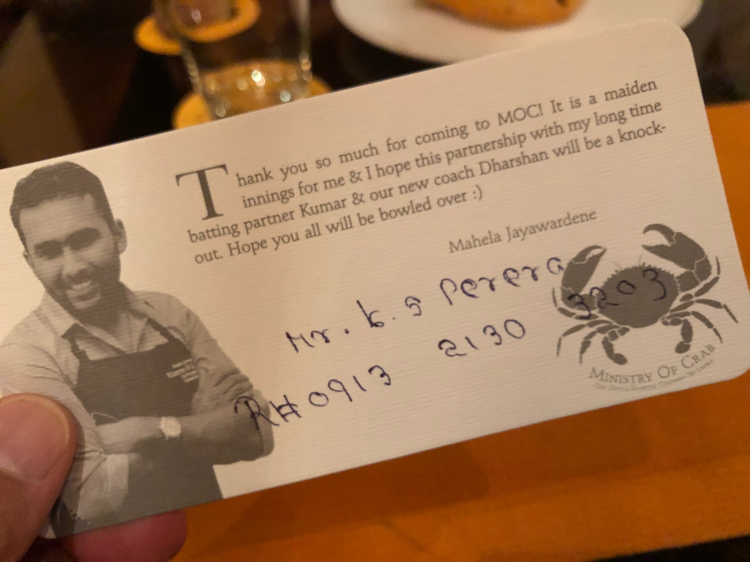 Thank you so much for coming to MOC! It is a maiden
innings for me & I hope this partnership with my long time
batting partner Kumar & our new coach Dharshan will be a knock-
out. Hope you all will be bowled over :)
Mahela Jayawardene
Mr. K. S Perera
RH0913 2130 3203
MINISTRY OF CRAB